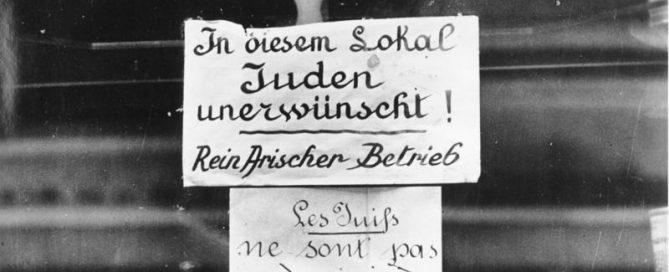 In diesem Lokal
Juden
unerwünscht!
Rein Arischer Betrieb
Les Juifs
ne sont pas